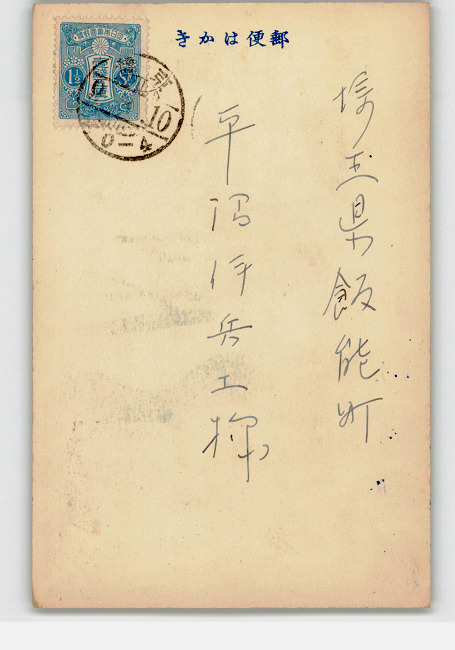 郵便はかき
埼玉県飯能町
平沼伊兵エ様
1½
10